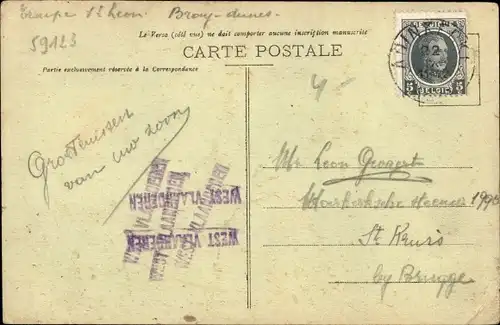 St Leon. Bray-dunes.
59123
Le Verso (côté vue) ne doit comporter aucune inscription manuscrite
CARTE POSTALE
Partie exclusivement réservée à la Correspondance
22
5 BELGIË 5
4-
Groetenissen
van uw zoon
WEST VLAANDEREN
WEST VLAANDEREN
WEST VLAANDEREN
WEST VLAANDEREN
WEST VLAANDEREN
Mr Leon Gevaert
St Kruis
by Brugge